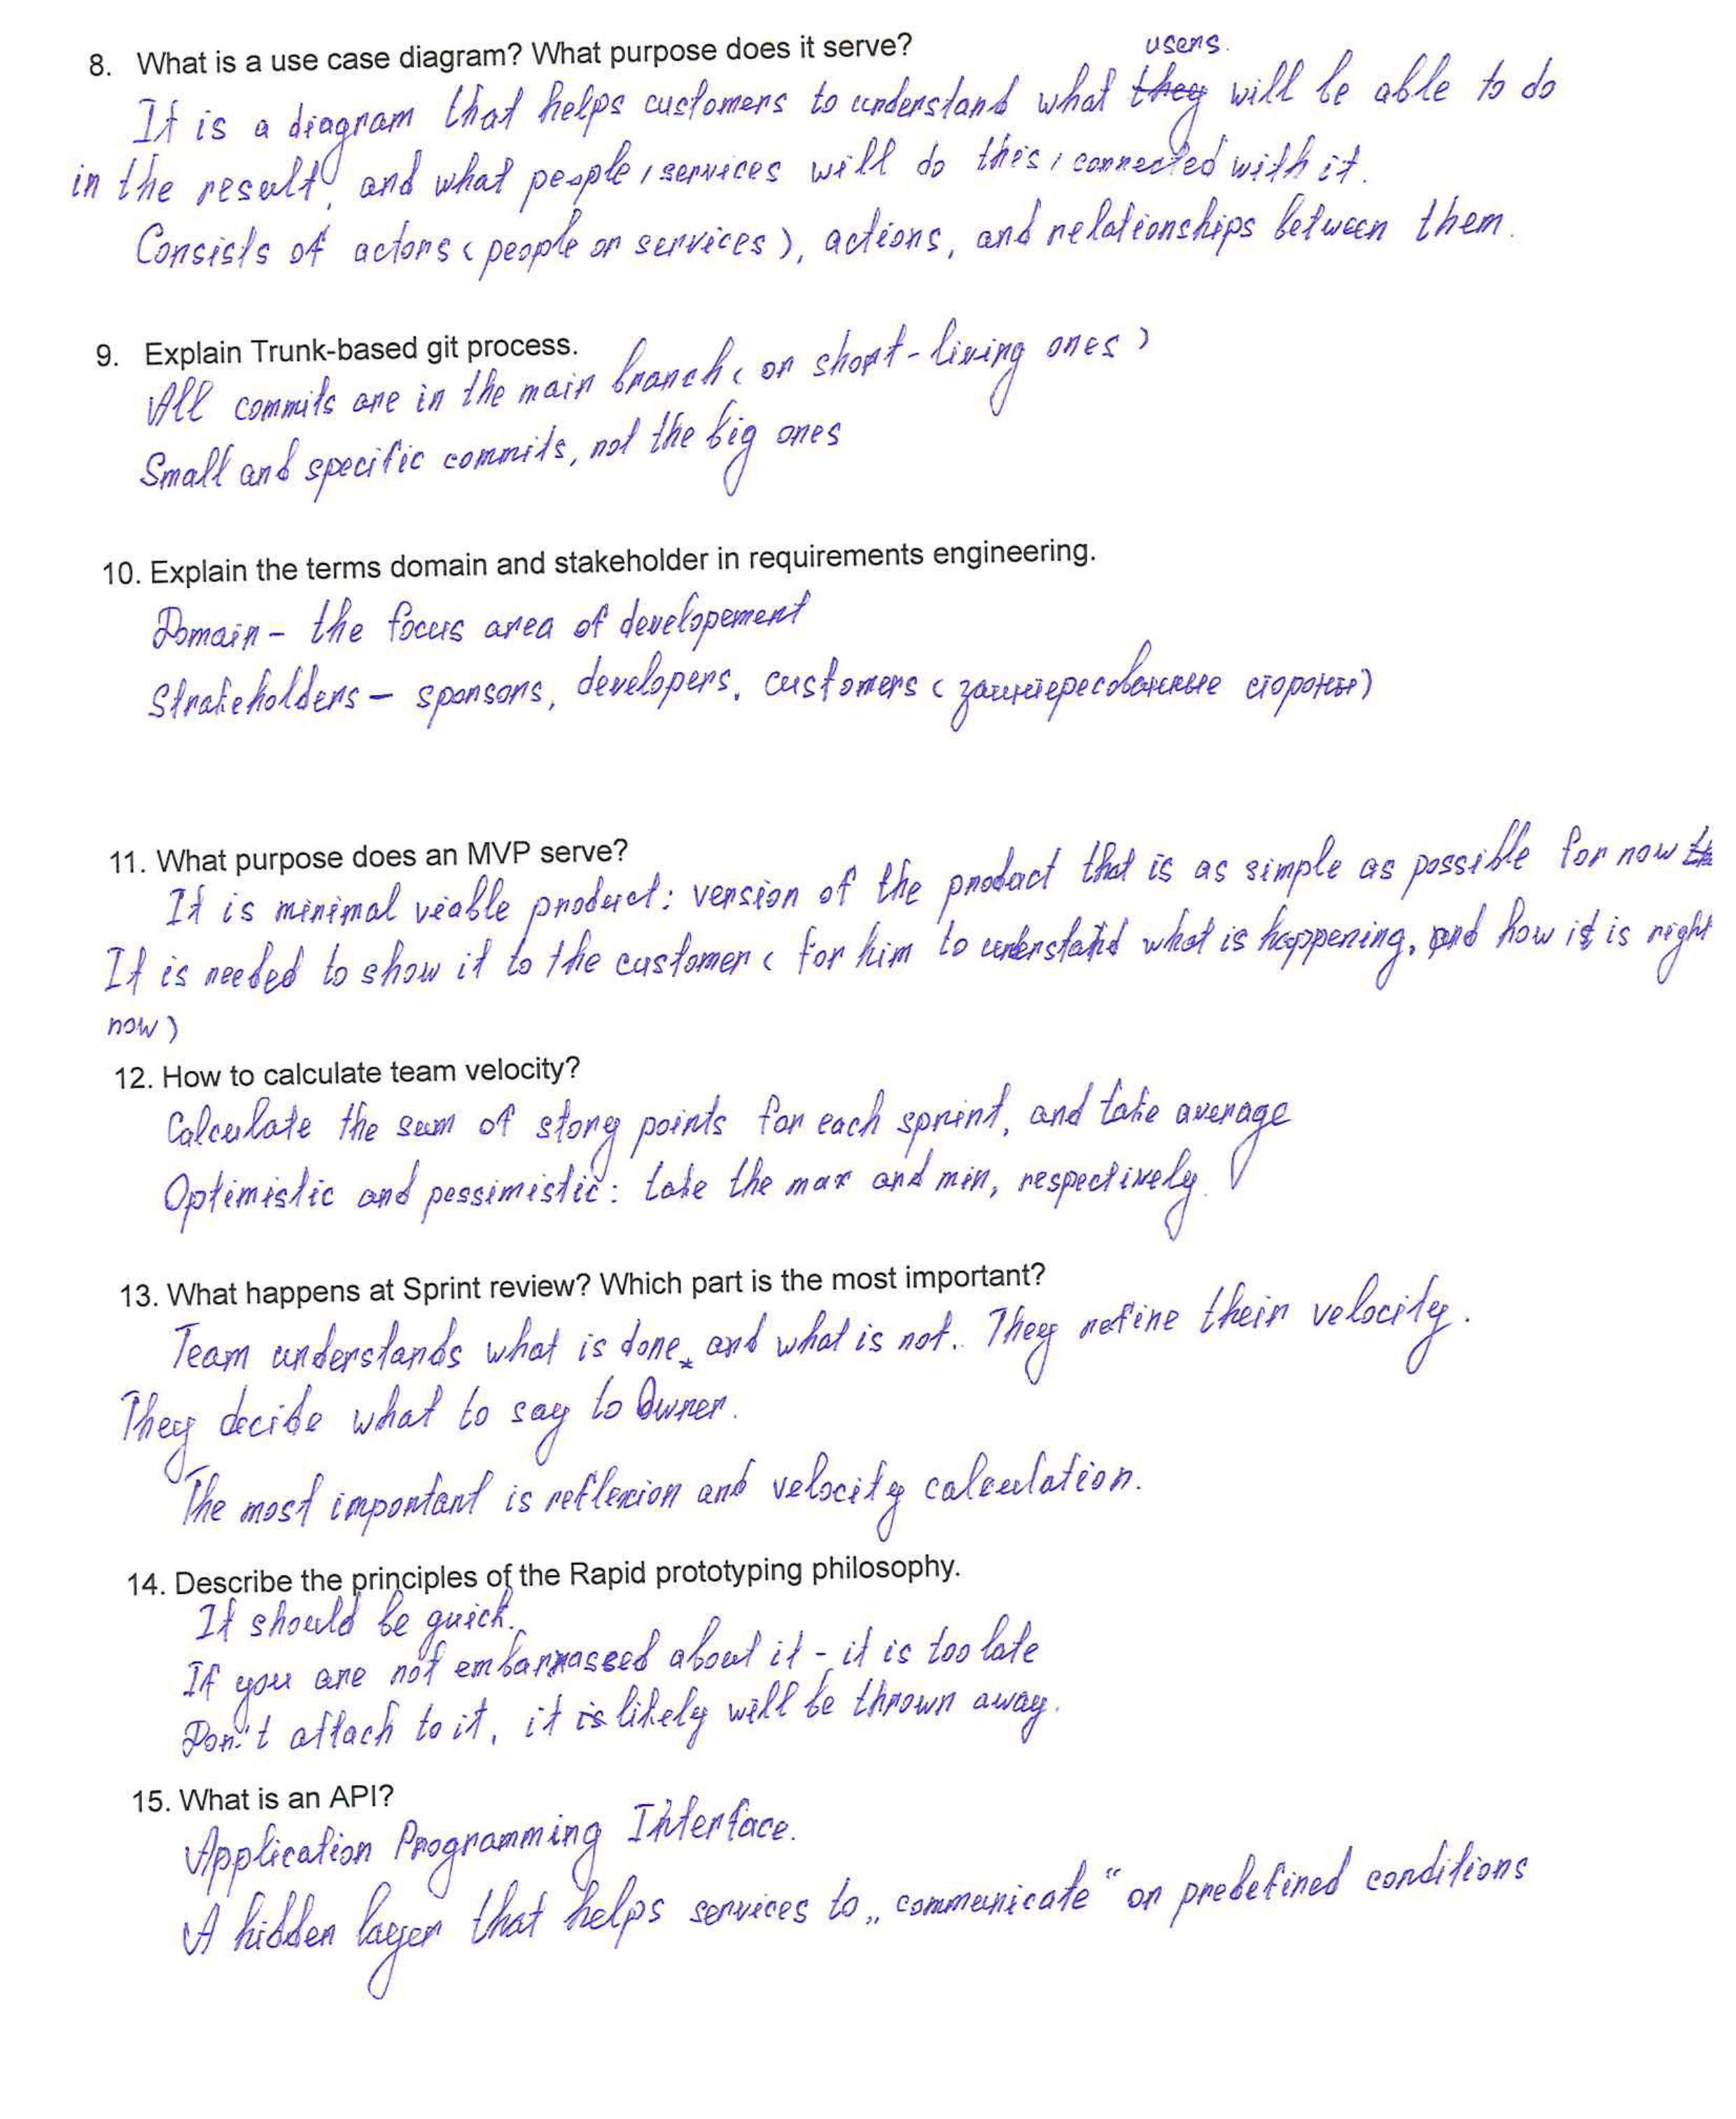 8. What is a use case diagram? What purpose does it serve?
users.
It is a diagram that helps customers to understand what they will be able to do
in the result, and what people / services will do this / connected with it.
Consists of actors (people or services), actions, and relationships between them.
9. Explain Trunk-based git process.
All commits are in the main branch (or short-living ones)
Small and specific commits, not the big ones
10. Explain the terms domain and stakeholder in requirements engineering.
Domain - the focus area of developement
Strakeholders - sponsors, developers, customers (заинтересованные стороны)
11. What purpose does an MVP serve?
It is minimal viable product: version of the product that is as simple as possible for now
It is needed to show it to the customer (for him to understand what is happening, and how it is right
now)
12. How to calculate team velocity?
Calculate the sum of story points for each sprint, and take average
Optimistic and pessimistic: take the max and min, respectively.
13. What happens at Sprint review? Which part is the most important?
Team understands what is done, and what is not. They refine their velocity.
They decide what to say to Owner.
The most important is reflexion and velocity calculation.
14. Describe the principles of the Rapid prototyping philosophy.
It should be quick.
If you are not embarrassed about it - it is too late
Don't attach to it, it is likely will be thrown away.
15. What is an API?
Application Programming Interface.
A hidden layer that helps services to „communicate“ on predefined conditions